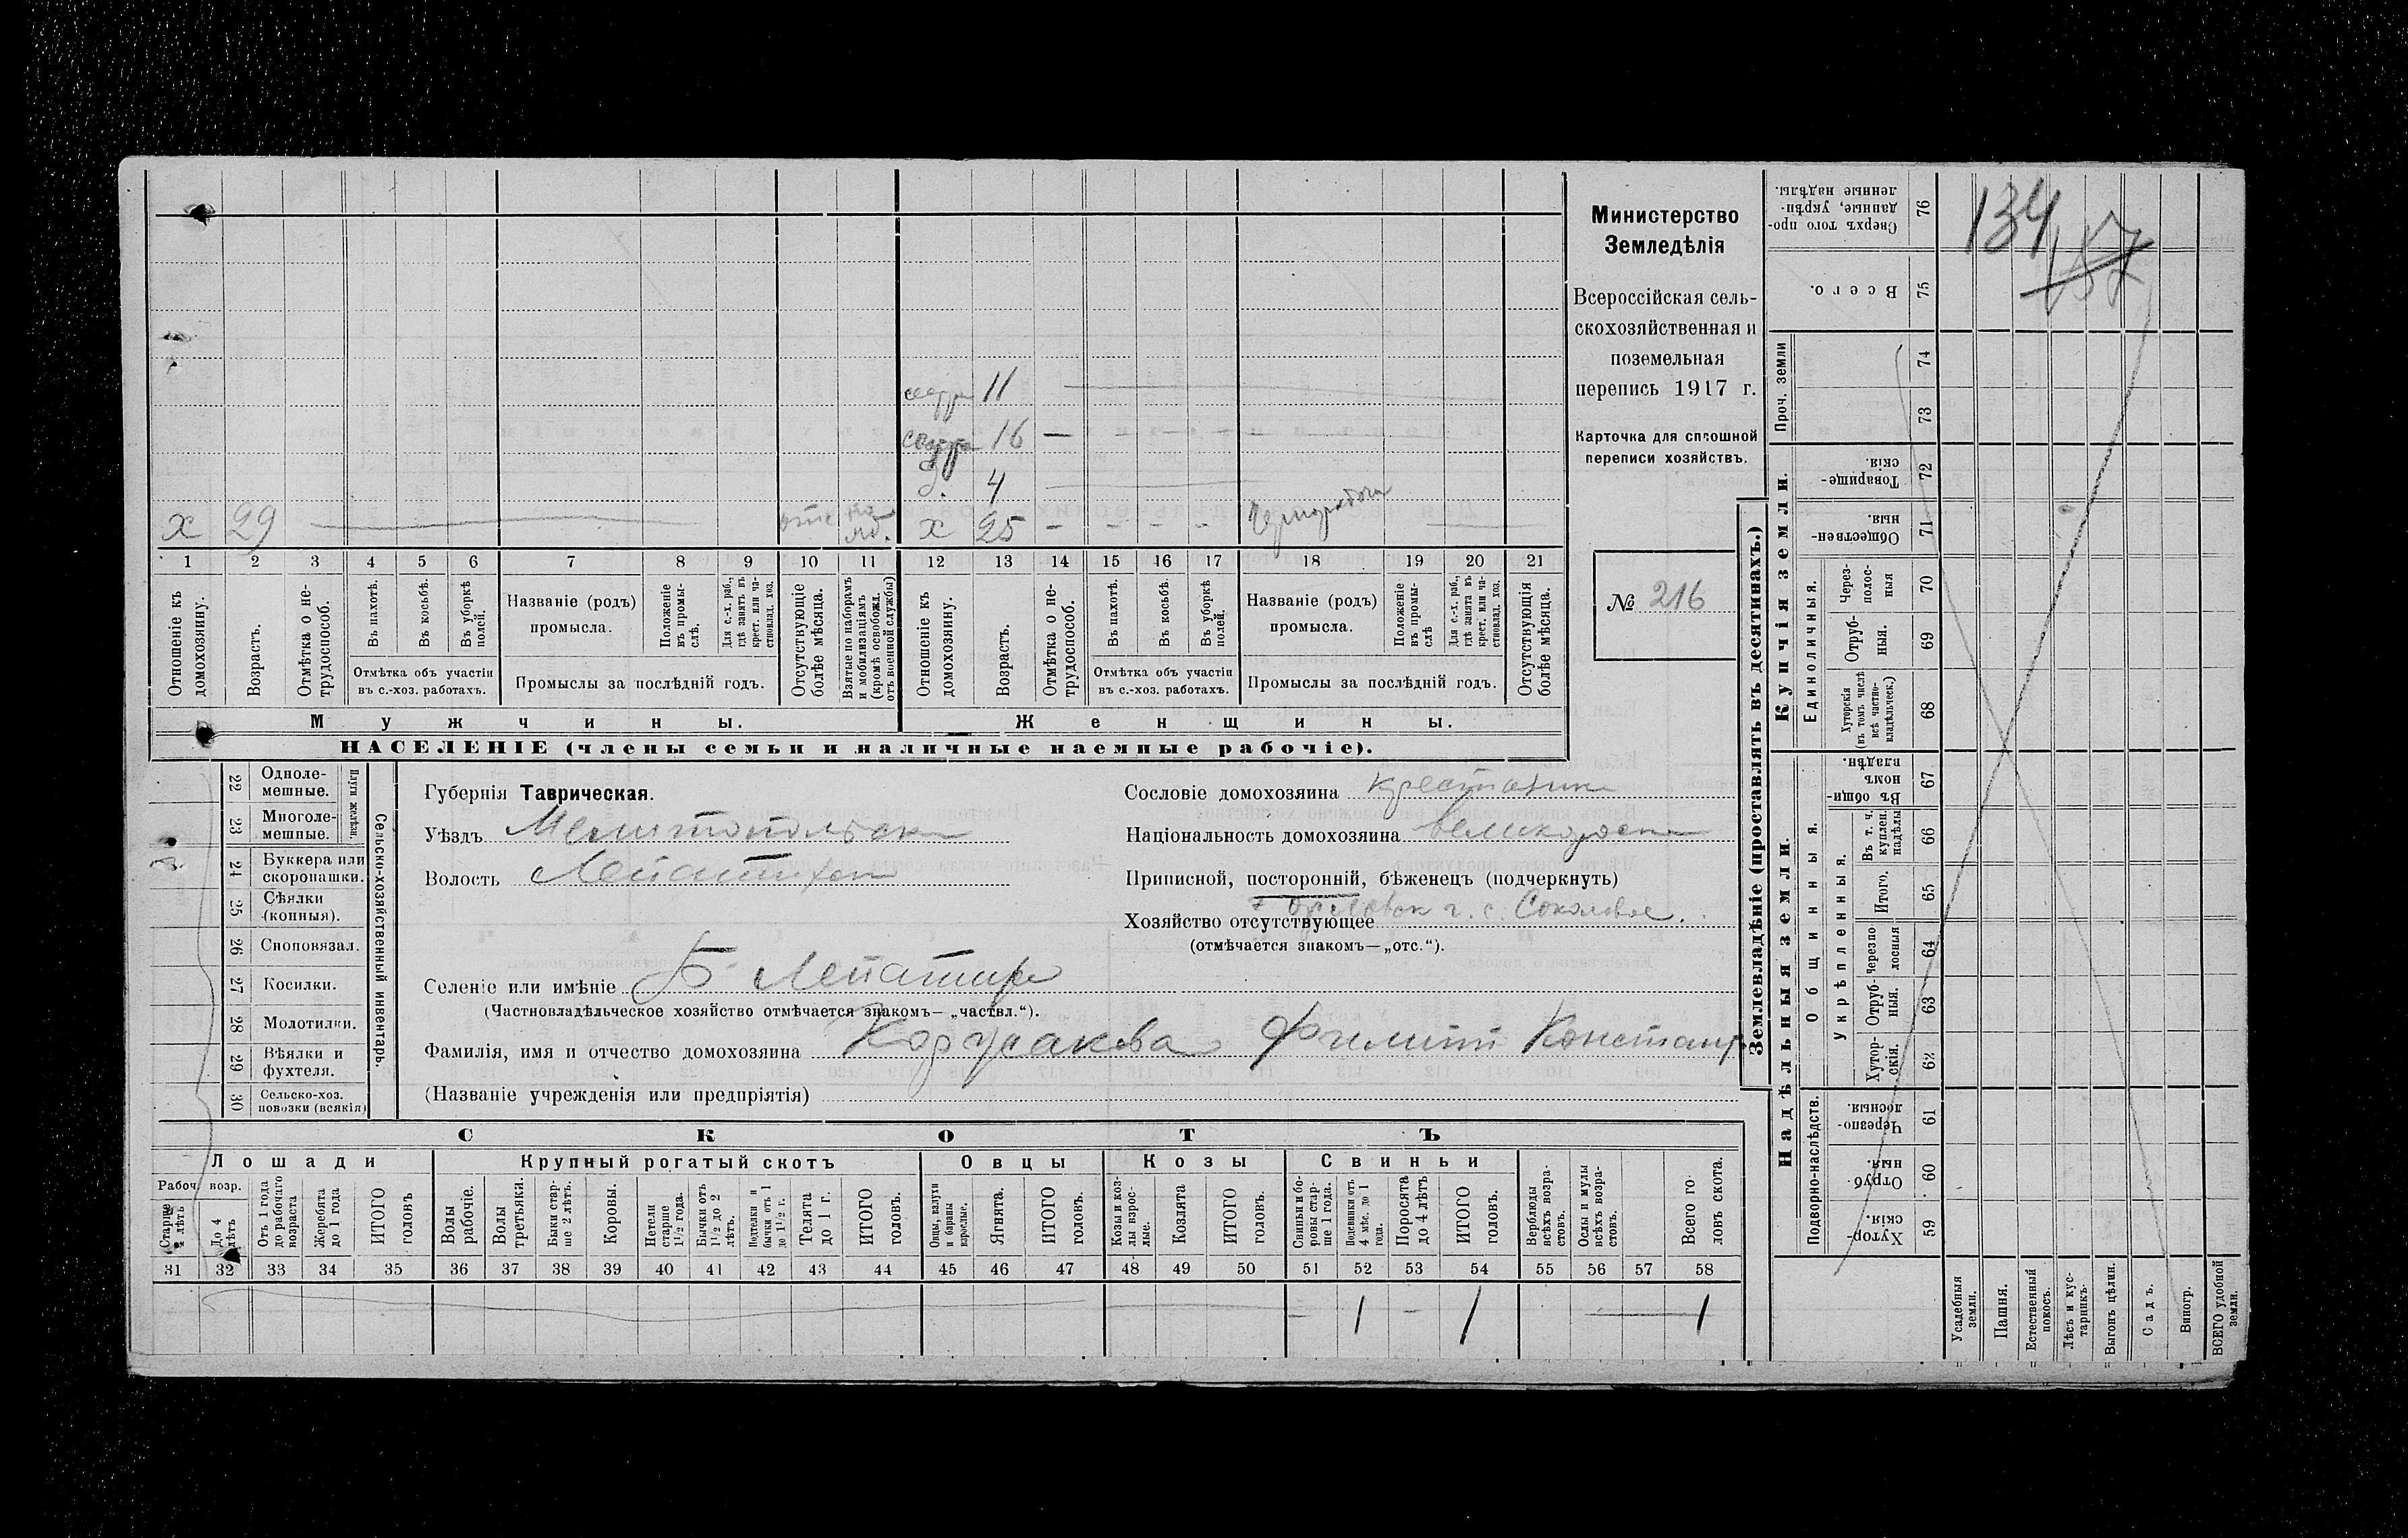 Министерство
Земледѣлія
Всероссійская сель-
скохозяйственная и
поземельная
перепись 1917 г.
Карточка для сплошной
переписи хозяйствъ.
№ 216
134
сестра 11
сестра 16 —
д. 4
х 29
х 25 - - - -
1 2 3 4 5 6 7 8 9 10 11 12 13 14 15 16 17 18 19 20 21
Отношеніе къ домохозяину.
Возрастъ.
Отмѣтка о не-трудоспособ.
Въ пахотѣ.
Въ косьбѣ.
Въ уборкѣ полей.
Отмѣтка объ участіи
въ с.-хоз. работахъ.
Названіе (родъ)
промысла.
Положеніе въ промы-слѣ.
Для с.-х. раб., гдѣ занятъ въ крест. или ча-стновлад. хоз.
Промыслы за послѣдній годъ.
Отсутствующіе болѣе мѣсяца.
Взятые по наборамъ и мобилизаціямъ (кромѣ освобожд. отъ военной службы)
Отношеніе къ домохозяину.
Возрастъ.
Отмѣтка о не-трудоспособ.
Въ пахотѣ.
Въ косьбѣ.
Въ уборкѣ полей.
Отмѣтка объ участіи
въ с.-хоз. работахъ.
Названіе (родъ)
промысла.
Положеніе въ промы-слѣ
Для с.-х. раб., гдѣ занята въ крест. или ча-стновлад. хоз.
Промыслы за послѣдній годъ.
Отсутствующія болѣе мѣсяца.
Мужчины.
Женщины.
НАСЕЛЕНІЕ (члены семьи и наличные наемные рабочіе).
Сельско-хозяйственный инвентарь.
Плуги желѣзн.
22 Одноле-мешные.
23 Многоле-мешные.
24 Буккера или скоропашки.
25 Сѣялки (конныя).
26 Сноповязал.
27 Косилки.
28 Молотилки.
29 Вѣялки и фухтеля.
30 Сельско-хоз. повозки (всякія)
Губернія Таврическая.
Уѣздъ Мелитопольск
Волость Лепатихск
Сословіе домохозяина крестьянин
Національность домохозяина великоросс
Приписной, посторонній, бѣженецъ (подчеркнуть)
Орловск г. с. Соколовое.
Хозяйство отсутствующее
(отмѣчается знакомъ—„отс.“).
Селеніе или имѣніе Б Лепатиха
(Частновладѣльческое хозяйство отмѣчается знакомъ— „частвл.“).
Фамилія, имя и отчество домохозяина Филипп Констант
(Названіе учрежденія или предпріятія)
СКОТЪ
Лошади
Рабоч. возр.
До 4 лѣтъ
Отъ 1 года до рабочаго возраста
Жеребята до 1 года
ИТОГО головъ
Крупный рогатый скотъ
Волы рабочіе.
Волы третьяки.
Быки стар-ше 2 лѣтъ.
Коровы.
Нетели старше 1½ года.
Бычки отъ 1½ до 2 лѣтъ.
Подтелки и бычки отъ 1 до 1½ г.
Телята до 1 г.
ИТОГО головъ.
Овцы
Овцы, валухи и бараны взрослые.
Ягнята.
ИТОГО головъ.
Козы
Козы и коз-лы взрос-лые.
Козлята
ИТОГО головъ.
Свиньи
Свиньи и бо-ровы стар-ше 1 года.
Подсвинки отъ 4 мѣс. до 1 года.
Поросята до 4 лѣтъ
ИТОГО головъ.
Верблюды всѣхъ возра-стовъ.
Ослы и мулы всѣхъ возра-стовъ.
Всего го-ловъ скота.
31 32 33 34 35 36 37 38 39 40 41 42 43 44 45 46 47 48 49 50 51 52 53 54 55 56 57 58
— 1 — 1 — 1
Землевладѣніе (проставлять въ десятинахъ.)
Купчія земли.
Надѣльныя земли.
76 Сверхъ того про-данные, укрѣп-ленные надѣлы.
75 Всего.
Проч. земли
74
73
72 Товарище-скія.
71 Обществен-ныя.
Единоличныя.
70 Через-полос-ныя
69 Отруб-ныя.
68 Хуторскія (въ томъ числѣ всѣ частно-владѣльческ.)
Общинныя.
67 Въ общи-номъ владѣн.
Укрѣпленныя.
66 Въ т. ч. куплен. надѣлы
65 Итого.
64 Черезпо-лосныя
63 Отруб-ныя.
62 Хутор-скія.
Подворно-наслѣдств.
61 Черезпо-лосныя.
60 Отруб-ныя.
59 Хутор-скія.
Усадебныя земли.
Пашня.
Естественный покосъ.
Лѣсъ и кус-тарникъ.
Выгонъ цѣлин.
Садъ.
Виногр.
ВСЕГО удобной земли.